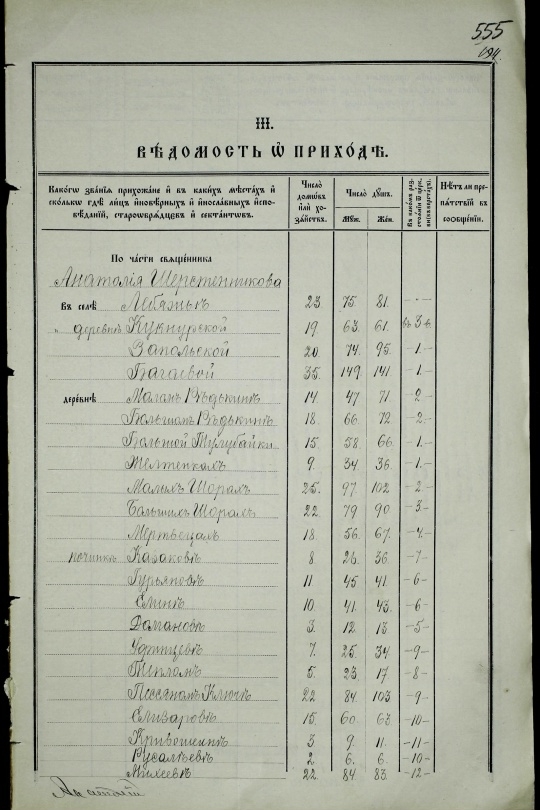 555
194.
III.
ВѢ́ДОМОСТЬ Ѡ҆ ПРИХО́ДѢ.
Како́гѡ зва́нїѧ прихожа́не и҆ въ каки́хъ мѣста́хъ и҆ ско́лькѡ гдѣ̀ ли́цъ и҆новѣ́рныхъ и҆ и҆носла́вныхъ и҆сповѣ́данїй, старообрѧ́дцевъ и҆ секта́нтѡвъ.
Число̀ домѡ́въ и҆лѝ хозѧ́йствъ.
Число̀ дꙋ́шъ.
Мꙋж.
Жен.
Въ како́мъ разстоѧ́нїи ѿ це́ркви въ верста́хъ.
Нѣ́тъ ли препѧ́тствїй въ сообще́нїи.
По ча́сти свѧще́нника
Анатолія Шерстенникова
Въ селѣ̀ Лебяжьѣ 23 75. 81. - · -
" деревнѣ Кукнурской 19. 63. 61. въ 3 в.
Запольской 20. 74. 95. -1.-
Гагаевой 35. 149. 141. -1.-
дере́внѣ Малом Рѣдькинѣ 14 47 71. -2-
Большом Рѣдькинѣ 18. 66. 72. -2.-
Большой Тулубайки 15. 58. 66. -1.-
Желтенкахъ 9. 34. 36. -1.-
Малыхъ Шорахъ 25. 97. 102 -2.-
Большихъ Шорахъ 22. 79. 90. -3.-
Мертвецахъ 18. 56. 67. -4.-
починкѣ Казаковѣ 8 26. 36. -7-
Гурьяновѣ 11 45. 41. -6-
Елинѣ 10. 41. 43. -6-
Домановѣ 3. 12. 13. -5-
7. 25. 34. -9-
5. 23. 17. -8-
Песчаномъ Ключѣ 22 84. 103 -9-
Елизаровѣ 15. 60. 63. -10-
Кривошеинѣ 3 9. 11. -11-
Русалѣевѣ 2 6. 6. -10-
Михеевѣ 22. 84. 83. -12-